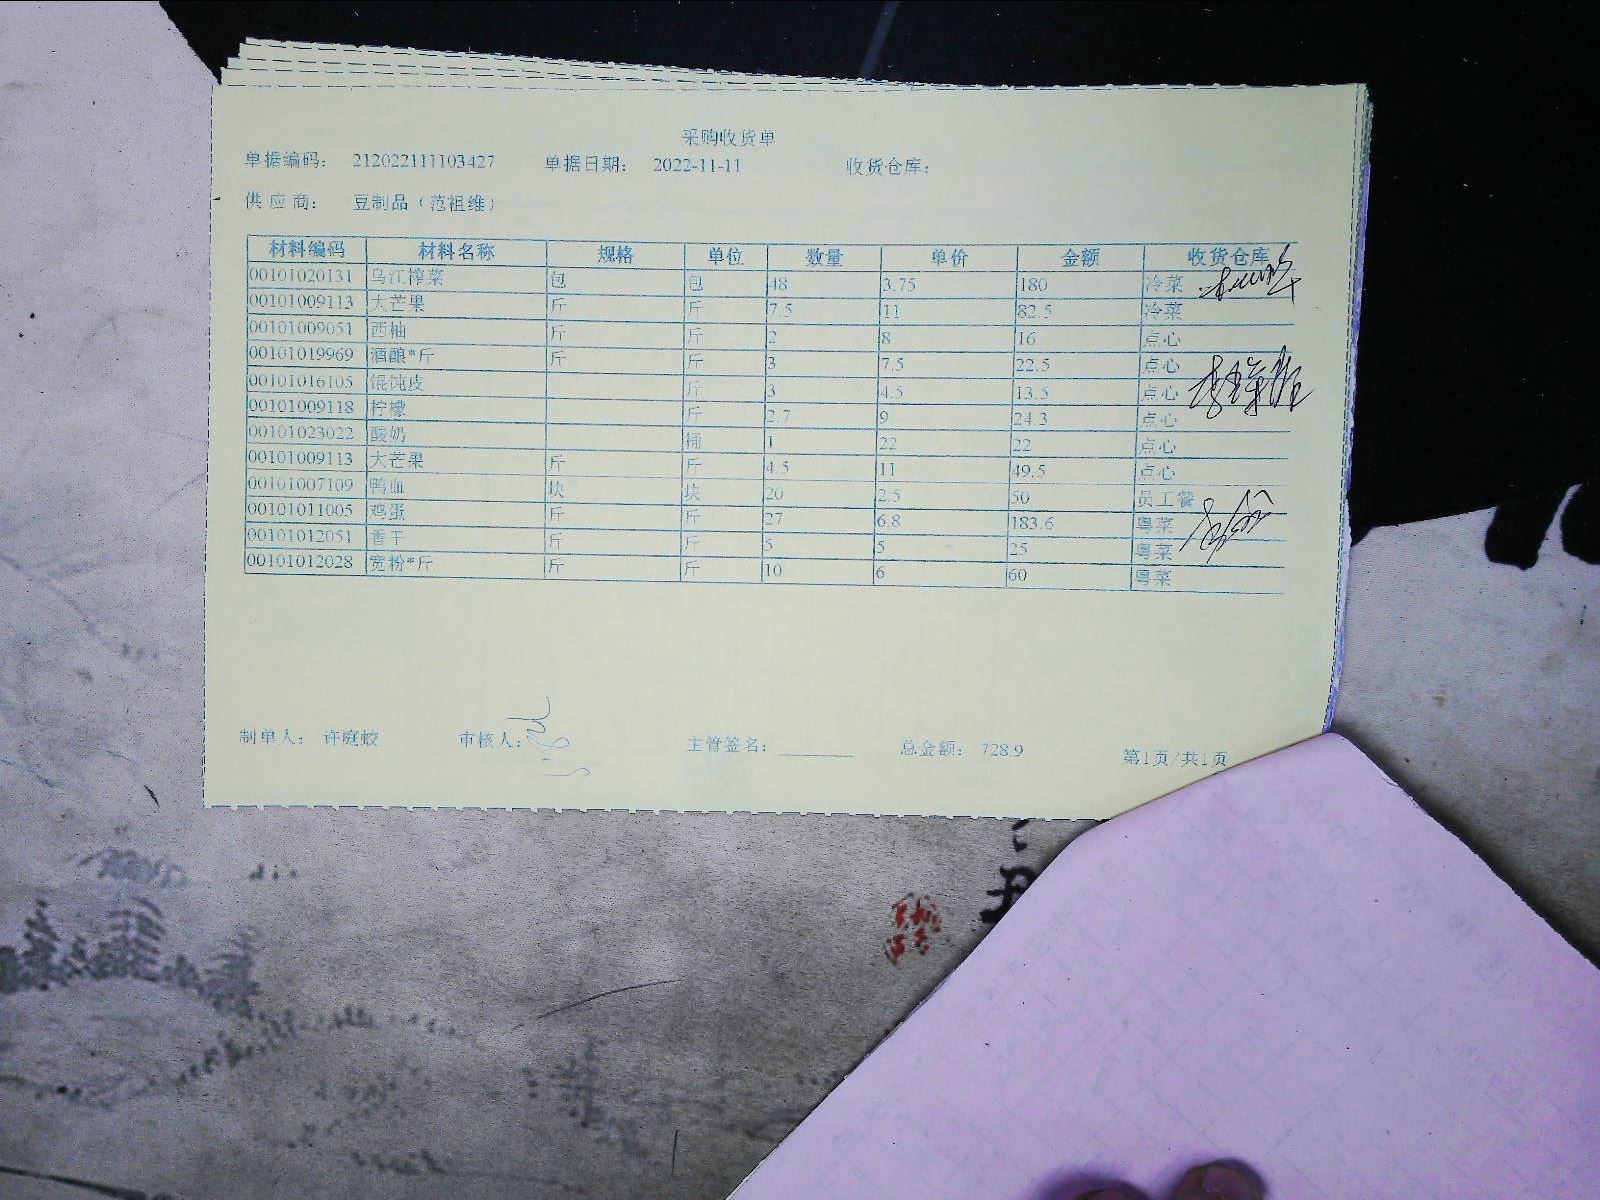 采购收货单
单据编码： 212022111103427 单据日期： 2022-11-11 收货仓库：
供应商： 豆制品（范祖维）
材料编码 材料名称 规格 单位 数量 单价 金额 收货仓库
00101020131 乌江榨菜 包 包 48 3.75 180 冷菜
00101009113 大芒果 斤 斤 7.5 11 82.5 冷菜
00101009051 西柚 斤 斤 2 8 16 点心
00101019969 酒酿*斤 斤 斤 3 7.5 22.5 点心
00101016105 馄饨皮 斤 3 4.5 13.5 点心
00101009118 柠檬 斤 2.7 9 24.3 点心
00101023022 酸奶 桶 1 22 22 点心
00101009113 大芒果 斤 斤 4.5 11 49.5 点心
00101007109 鸭血 块 块 20 2.5 50 员工餐
00101011005 鸡蛋 斤 斤 27 6.8 183.6 粤菜
00101012051 香干 斤 斤 5 5 25 粤菜
00101012028 宽粉*斤 斤 斤 10 6 60 粤菜
制单人： 许庭蛟 审核人： 主管签名： 总金额： 728.9 第1页/共1页